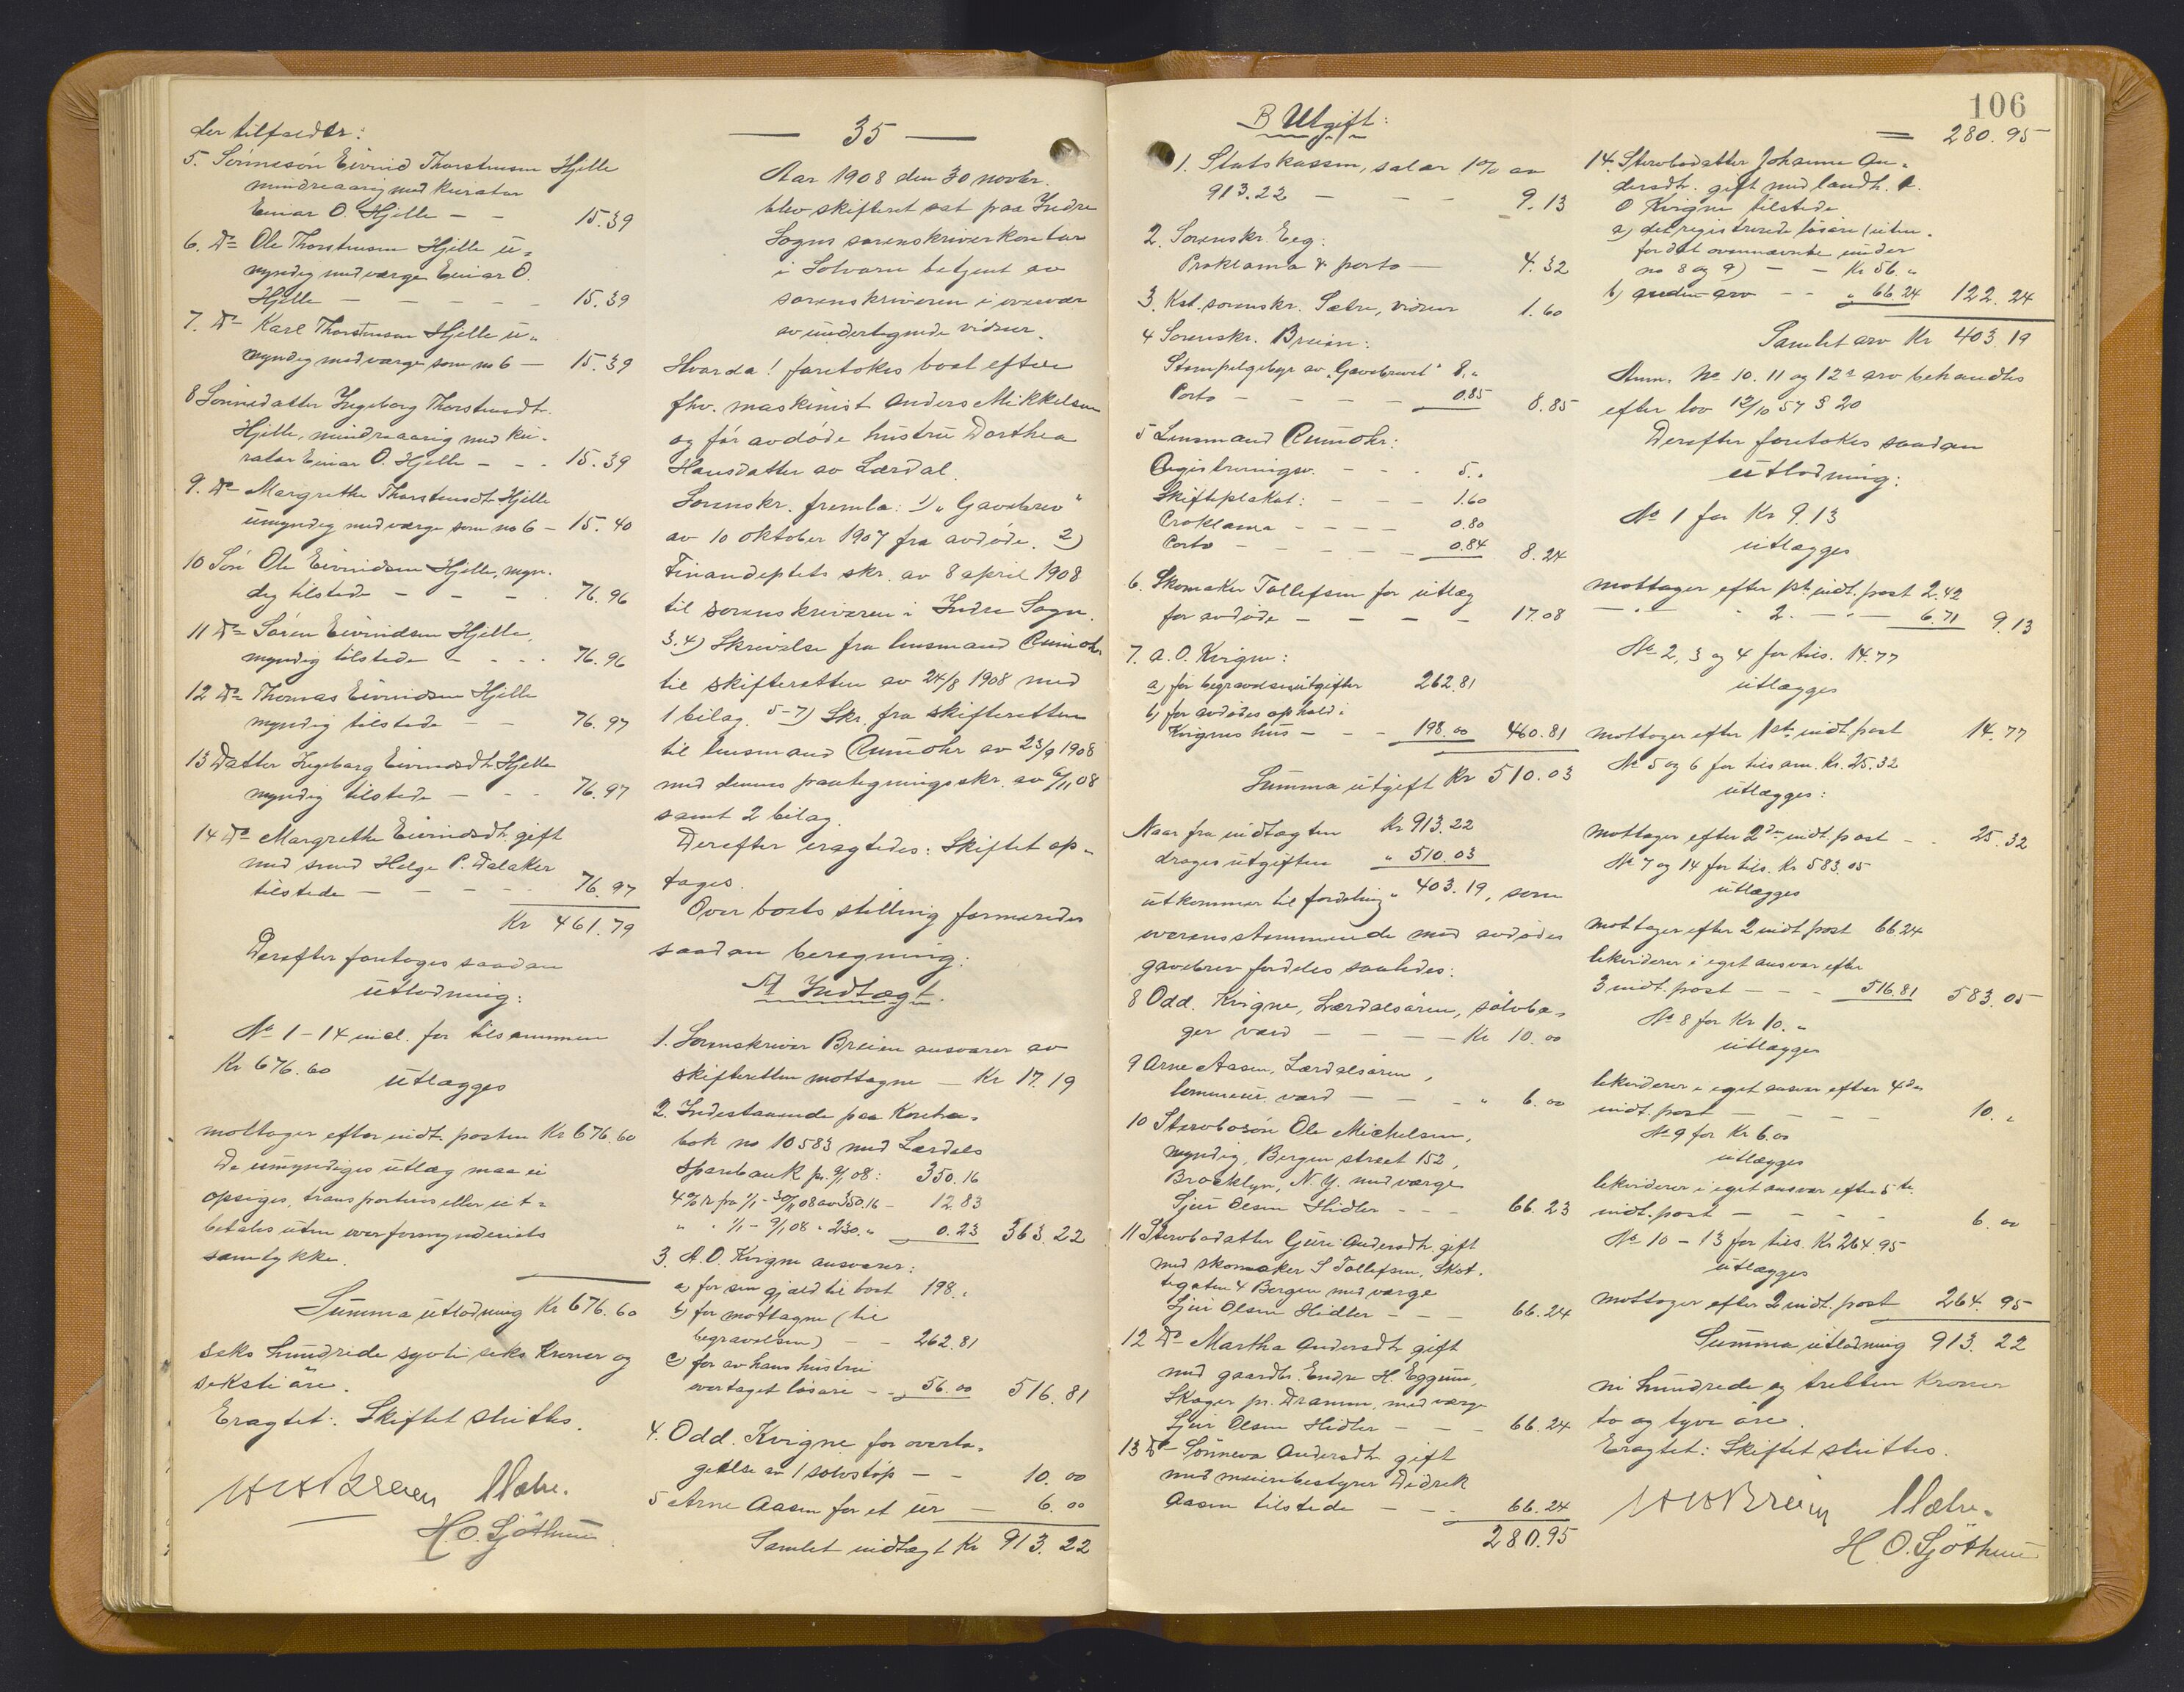 der tilfalder:
5. Sönnesön Eivind Thorstensen Hjelle
mindreaarig med kurator
Einar O. Hjelle – – 15.39
6. Do Ole Thorstensen Hjelle u-
myndig med værge Einar O.
Hjelle – – – – – 15.39
7. Do Karl Thorstensen Hjelle u-
myndig med værge som no 6 – 15.39
8 Sönnedatter Ingeborg Thorstensdtr.
Hjelle, mindreaarig med ku-
rator Einar O. Hjelle – – – 15.39
9. Do Margrethe Thorstensdtr Hjelle
umyndig med værge som no 6 – 15.40
10 Sön Ole Eivindsen Hjelle, myn-
dig tilstede – – – 76.96
11 Do Sören Eivindsen Hjelle,
myndig tilstede – – – 76.96
12 Do Thomas Eivindsen Hjelle
myndig tilstede – – 76.97
13 Datter Ingeborg Eivindsdtr Hjelle
myndig tilstede – – – 76.97
14 Do Margrethe Eivindsdtr. gift
med smed Helge P. Dalaker
tilstede – – – – 76.97
Kr 461.79
Derefter foretoges saadan
utlodning:
No 1 – 14 incl. for tilsammen
Kr 676.60 utlægges
mottager efter indt. posten Kr 676.60
De umyndiges utlæg maa ei
opsiges, transporteres eller ut-
betales uten overformynderiets
samtykke.
Summa utlodning Kr 676.60
seks hundrede sytti seks kroner og
seksti öre.
Eragtet: Skiftet sluttes.
Breien Sætre.
H. O. Sjöthun
— 35 —
Aar 1908 den 30 novbr.
blev skifteret sat paa Indre
Sogns sorenskriverkontor
i Solvorn betjent av
sorenskriveren i overvær
av undertegnede vidner.
Hvorda! foretokes boet efter
fhv. maskinist Anders Mikkelsen
og för avdöde hustru Dorthea
Hansdatter av Lærdal.
Sorenskr. fremla: 1) "Gavebrev"
av 10 oktober 1907 fra avdöde. 2)
Finansdeptets skr. av 8 april 1908
til sorenskriveren i Indre Sogn.
3.4) Skrivelse fra lensmand Rumohr
til skifteretten av 24/8 1908 med
1 bilag. 5–7) Skr. fra skifteretten
til lensmand Rumohr av 23/9 1908
med dennes paategningsskr. av 6/11 08
samt 2 bilag.
Derefter eragtedes: Skiftet op-
tages.
Over boets stilling formeredes
saadan beregning:
A Indtægt.
1. Sorenskriver Breien ansvarer av
skifteretten mottagne – Kr 17.19
2. Indestaaende paa Kontra-
bok no 10583 med Lærdals
sparebank pr. 9/1 08: 350.16
4% r. fra 1/1 – 30/11 08 av 350.16 – 12.83
" " 1/1 – 9/1 08 " 230." 0.23 363.22
3. A. O. Kvigne ansvarer:
a) for sin gjæld til boet 198."
b) for mottagne (til
begravelsen) – – 262.81
c) for av hans hustru
overtaget lösöre – – " 56.00 516.81
4. Odd. Kvigne for overta-
gelse av 1 sölvstöp – – 10.00
5 Arne Aasen for et ur – 6.00
Samlet indtægt Kr 913.22
106
B Utgift:
1. Statskassen, salær 1% av
913.22 – – – 9.13
2. Sorenskr. Eeg:
Proklama & porto – 4.32
3. Kst. sorenskr. Sætre, vidner 1.60
4 Sorenskr. Breien:
Stempelgebyr av "Gavebrevet" 8."
Porto – – – – 0.85 8.85
5 Lensmand Rumohr:
Registreringsv. – – – 5."
Skifteplakat: – – – 1.60
Proklama – – – – 0.80
Porto – – – – – 0.84 8.24
6. Skomaker Tollefsen for utlæg
for avdöde – – – – 17.08
7. A. O. Kvigne:
a) for begravelsesutgifter 262.81
b) for avdödes ophold i
Kvignes hus – – – 198.00 460.81
Summa utgift Kr 510.03
Naar fra indtægten Kr 913.22
drages utgiften " 510.03
utkommer til fordeling " 403.19, som
overensstemmende med avdödes
gavebrev fordeles saaledes:
8 Odd. Kvigne, Lærdalsören, sölvbæ-
ger værd – – – – Kr 10.00
9 Arne Aasen, Lærdalsören,
lommeur værd – – – " 6.00
10 Stervbosön Ole Michelsen,
myndig, Bergen street 152,
Brooklyn, N. Y. med værge
Sjur Olsen Hidler – – – 66.23
11 Stervbodatter Guri Andersdtr. gift
med skomaker S Tollefsen, Skot-
tegaten 4 Bergen med værge
Sjur Olsen Hidler – – – 66.24
12 Do Martha Andersdtr gift
med gaardbr. Endre H. Eggum,
Skoger pr. Dramm. med værge
Sjur Olsen Hidler – – – 66.24
13 Do Sönneva Andersdtr gift
med meieribestyrer Didrik
Aasen tilstede – – – 66.24
280.95
= 280.95
14. Stervbodatter Johanne An-
dersdtr. gift med landh. A.
O Kvigne tilstede
a) det registrerede lösöre (uten-
for det ovennævnte under
no 8 og 9) – – Kr 56."
b) anden arv – – " 66.24 122.24
Samlet arv Kr 403.19
Anm. No 10. 11 og 12s arv behandles
efter lov 12/10 57 § 20
Derefter foretokes saadan
utlodning:
No 1 for Kr 9.13
utlægges
mottager efter 1st. indt. post 2.42
– " – " 2. – " – 6.71 9.13
No 2, 3 og 4 for tils. 14.77
utlægges
mottager efter 1ste indt. post 14.77
No 5 og 6 for tilsam. Kr. 25.32
utlægges:
mottager efter 2den indt. post – – 25.32
No 7 og 14 for tils. Kr 583.05
utlægges
mottager efter 2 indt post 66.24
likviderer i eget ansvar efter
3 indt. post – – – 516.81 583.05
No 8 for Kr 10."
utlægges
likviderer i eget ansvar efter 4de
indt. post – – – – 10."
No 9 for Kr 6.00
utlægges
likviderer i eget ansvar efter 5te
indt. post – – – – 6.00
No 10 – 13 for tils. Kr 264.95
utlægges
mottager efter 2 indt. post 264.95
Summa utlodning 913.22
ni hundrede og tretten kroner
to og tyve öre.
Eragtet: Skiftet sluttes.
Breien Sætre.
H. O. Sjöthun